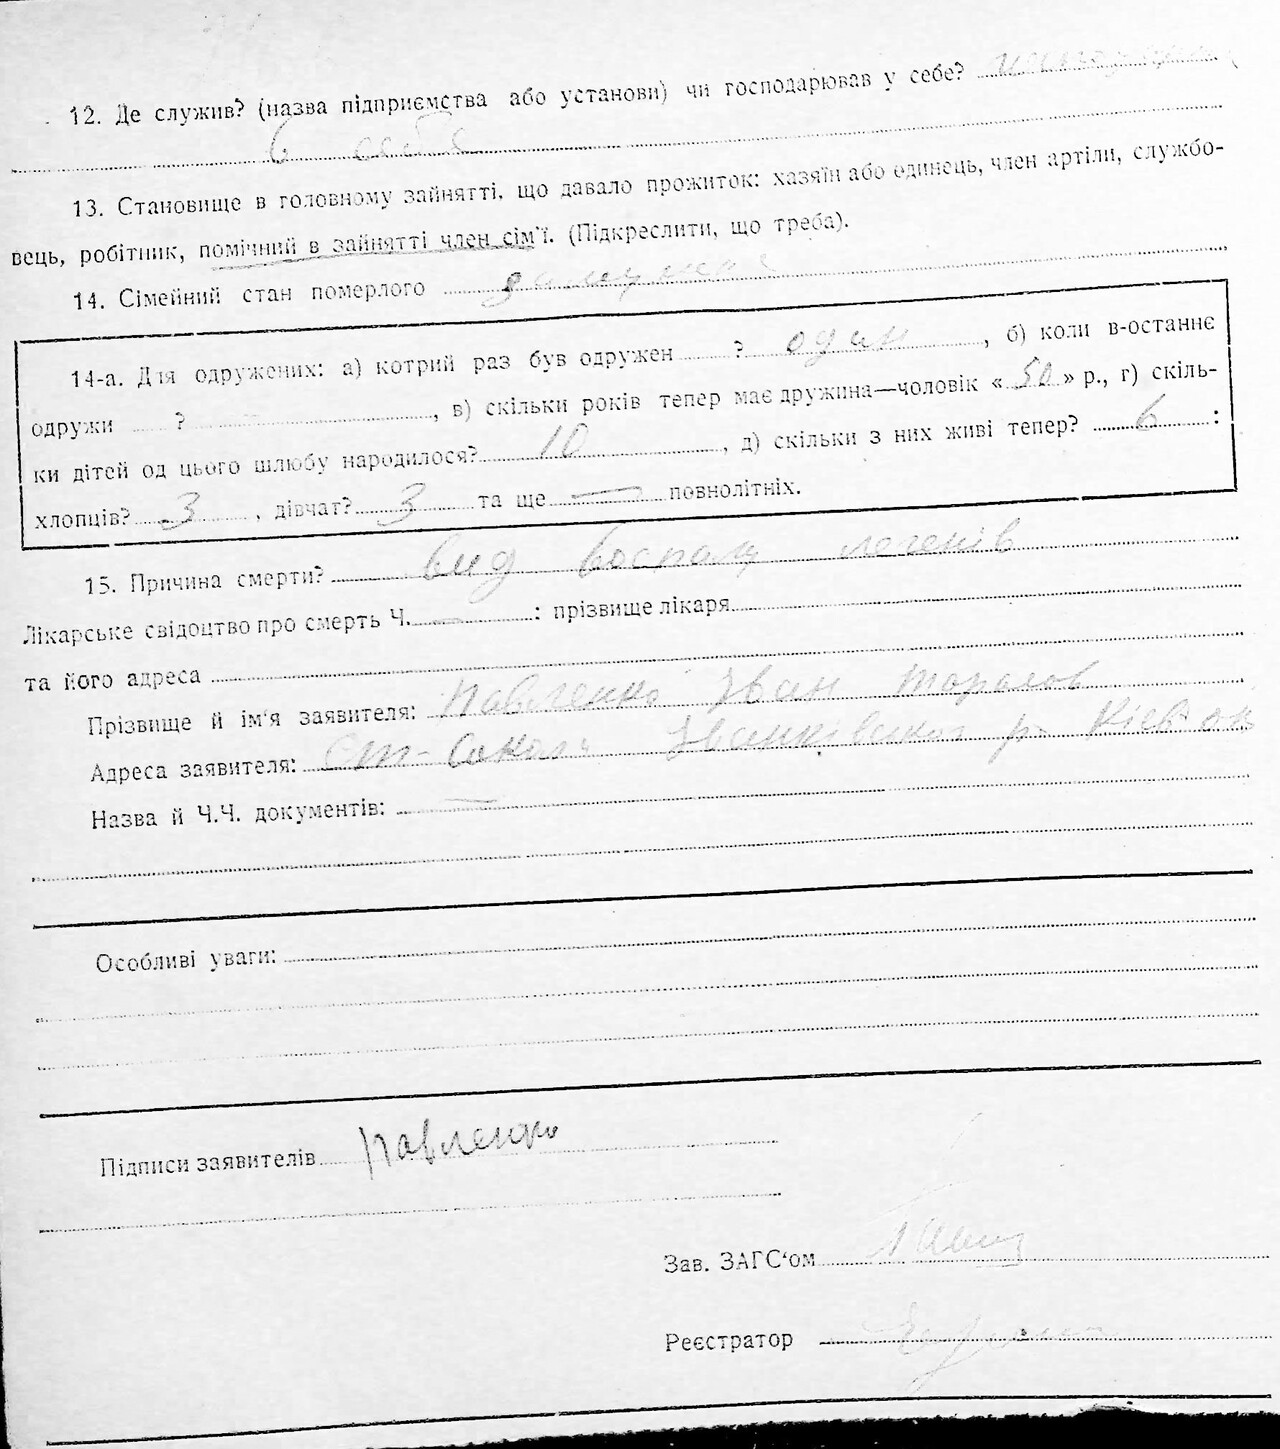 12. Де служив? (назва підприємства або установи) чи господарював у себе?
в себе
13. Становище в головному зайнятті, що давало прожиток: хазяїн або одинець, член артіли, службо-
вець, робітник, помічний в зайнятті член сім'ї. (Підкреслити, що треба).
14. Сімейний стан померлого замужня
14-а. Для одружених: а) котрий раз був одружен ? один , б) коли в-останнє
одружи ? , в) скільки років тепер має дружина—чоловік « 50 » р., г) скіль-
ки дітей од цього шлюбу народилося? 10 , д) скільки з них живі тепер? 6 :
хлопців? 3 , дівчат? 3 та ще — повнолітніх.
15. Причина смерти? вид воспал легенів
Лікарське свідоцтво про смерть Ч. — : прізвище лікаря
та його адреса
Прізвище й ім'я заявителя: Павленко Іван Тарасов
Адреса заявителя: Іванківськ р
Назва й Ч.Ч. документів: —
Особливі уваги:
Підписи заявителів Павленко
Зав. ЗАГС'ом
Реєстратор